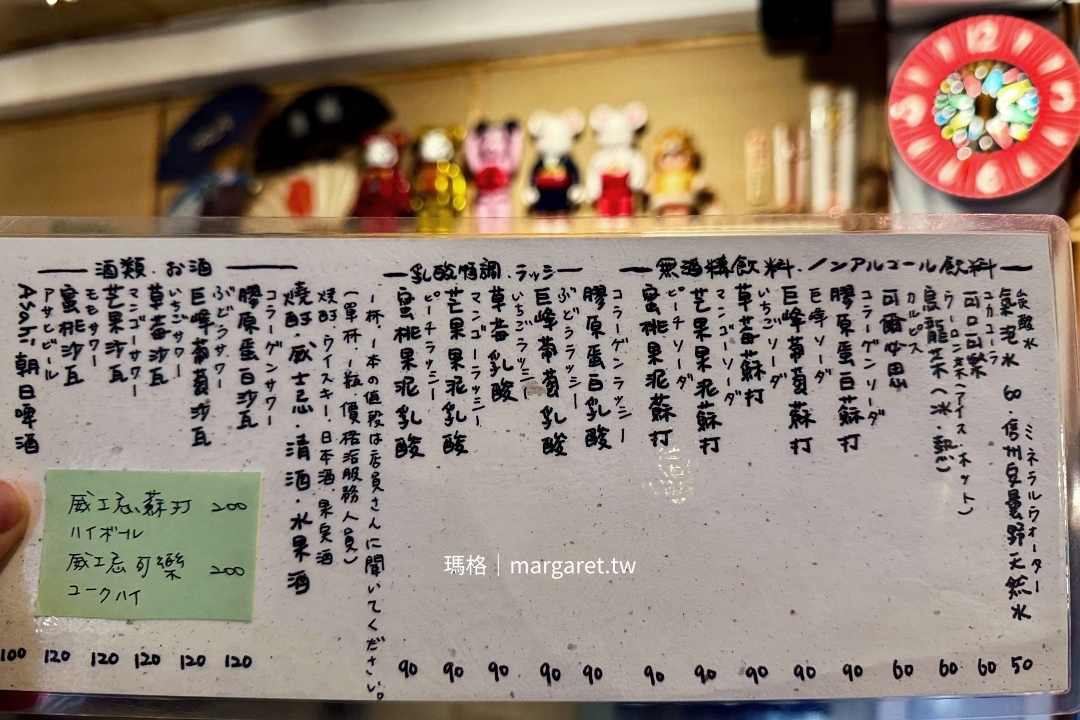 無酒精飲料.ノンアルコール飲料
炭酸水 ミネラルウォーター
氣泡水 60.信州安曇野天然水 50
コカコーラ
可口可樂 60
ウーロン茶(アイス.ホット)
烏龍茶(冰.熱) 60
カルピス
可爾必思 60
コラーゲンソーダ
膠原蛋白蘇打 90
巨峰ソーダ
巨峰葡萄蘇打 90
いちごソーダ
草莓蘇打 90
マンゴーソーダ
芒果果泥蘇打 90
ピーチソーダ
蜜桃果泥蘇打 90
乳酸特調.ラッシー
コラーゲンラッシー
膠原蛋白乳酸 90
ぶどうラッシー
巨峰葡萄乳酸 90
いちごラッシー
草莓乳酸 90
マンゴーラッシー
芒果果泥乳酸 90
ピーチラッシー
蜜桃果泥乳酸 90
一杯.1本の值段は店員さんに聞いてください。
(單杯.1瓶價格洽服務人員)
燒酎.ウイスキー.日本酒.果実酒
燒酎.威士忌.清酒.水果酒
酒類.お酒
コラーゲンサワー
膠原蛋白沙瓦 120
ぶどうサワー
巨峰葡萄沙瓦 120
いちごサワー
草莓沙瓦 120
マンゴーサワー
芒果沙瓦 120
モモサワー
蜜桃沙瓦 120
アサヒビール
Asahi朝日啤酒 100
威士忌蘇打 200
ハイボール
威士忌可樂 200
コークハイ
瑪格|margaret.tw